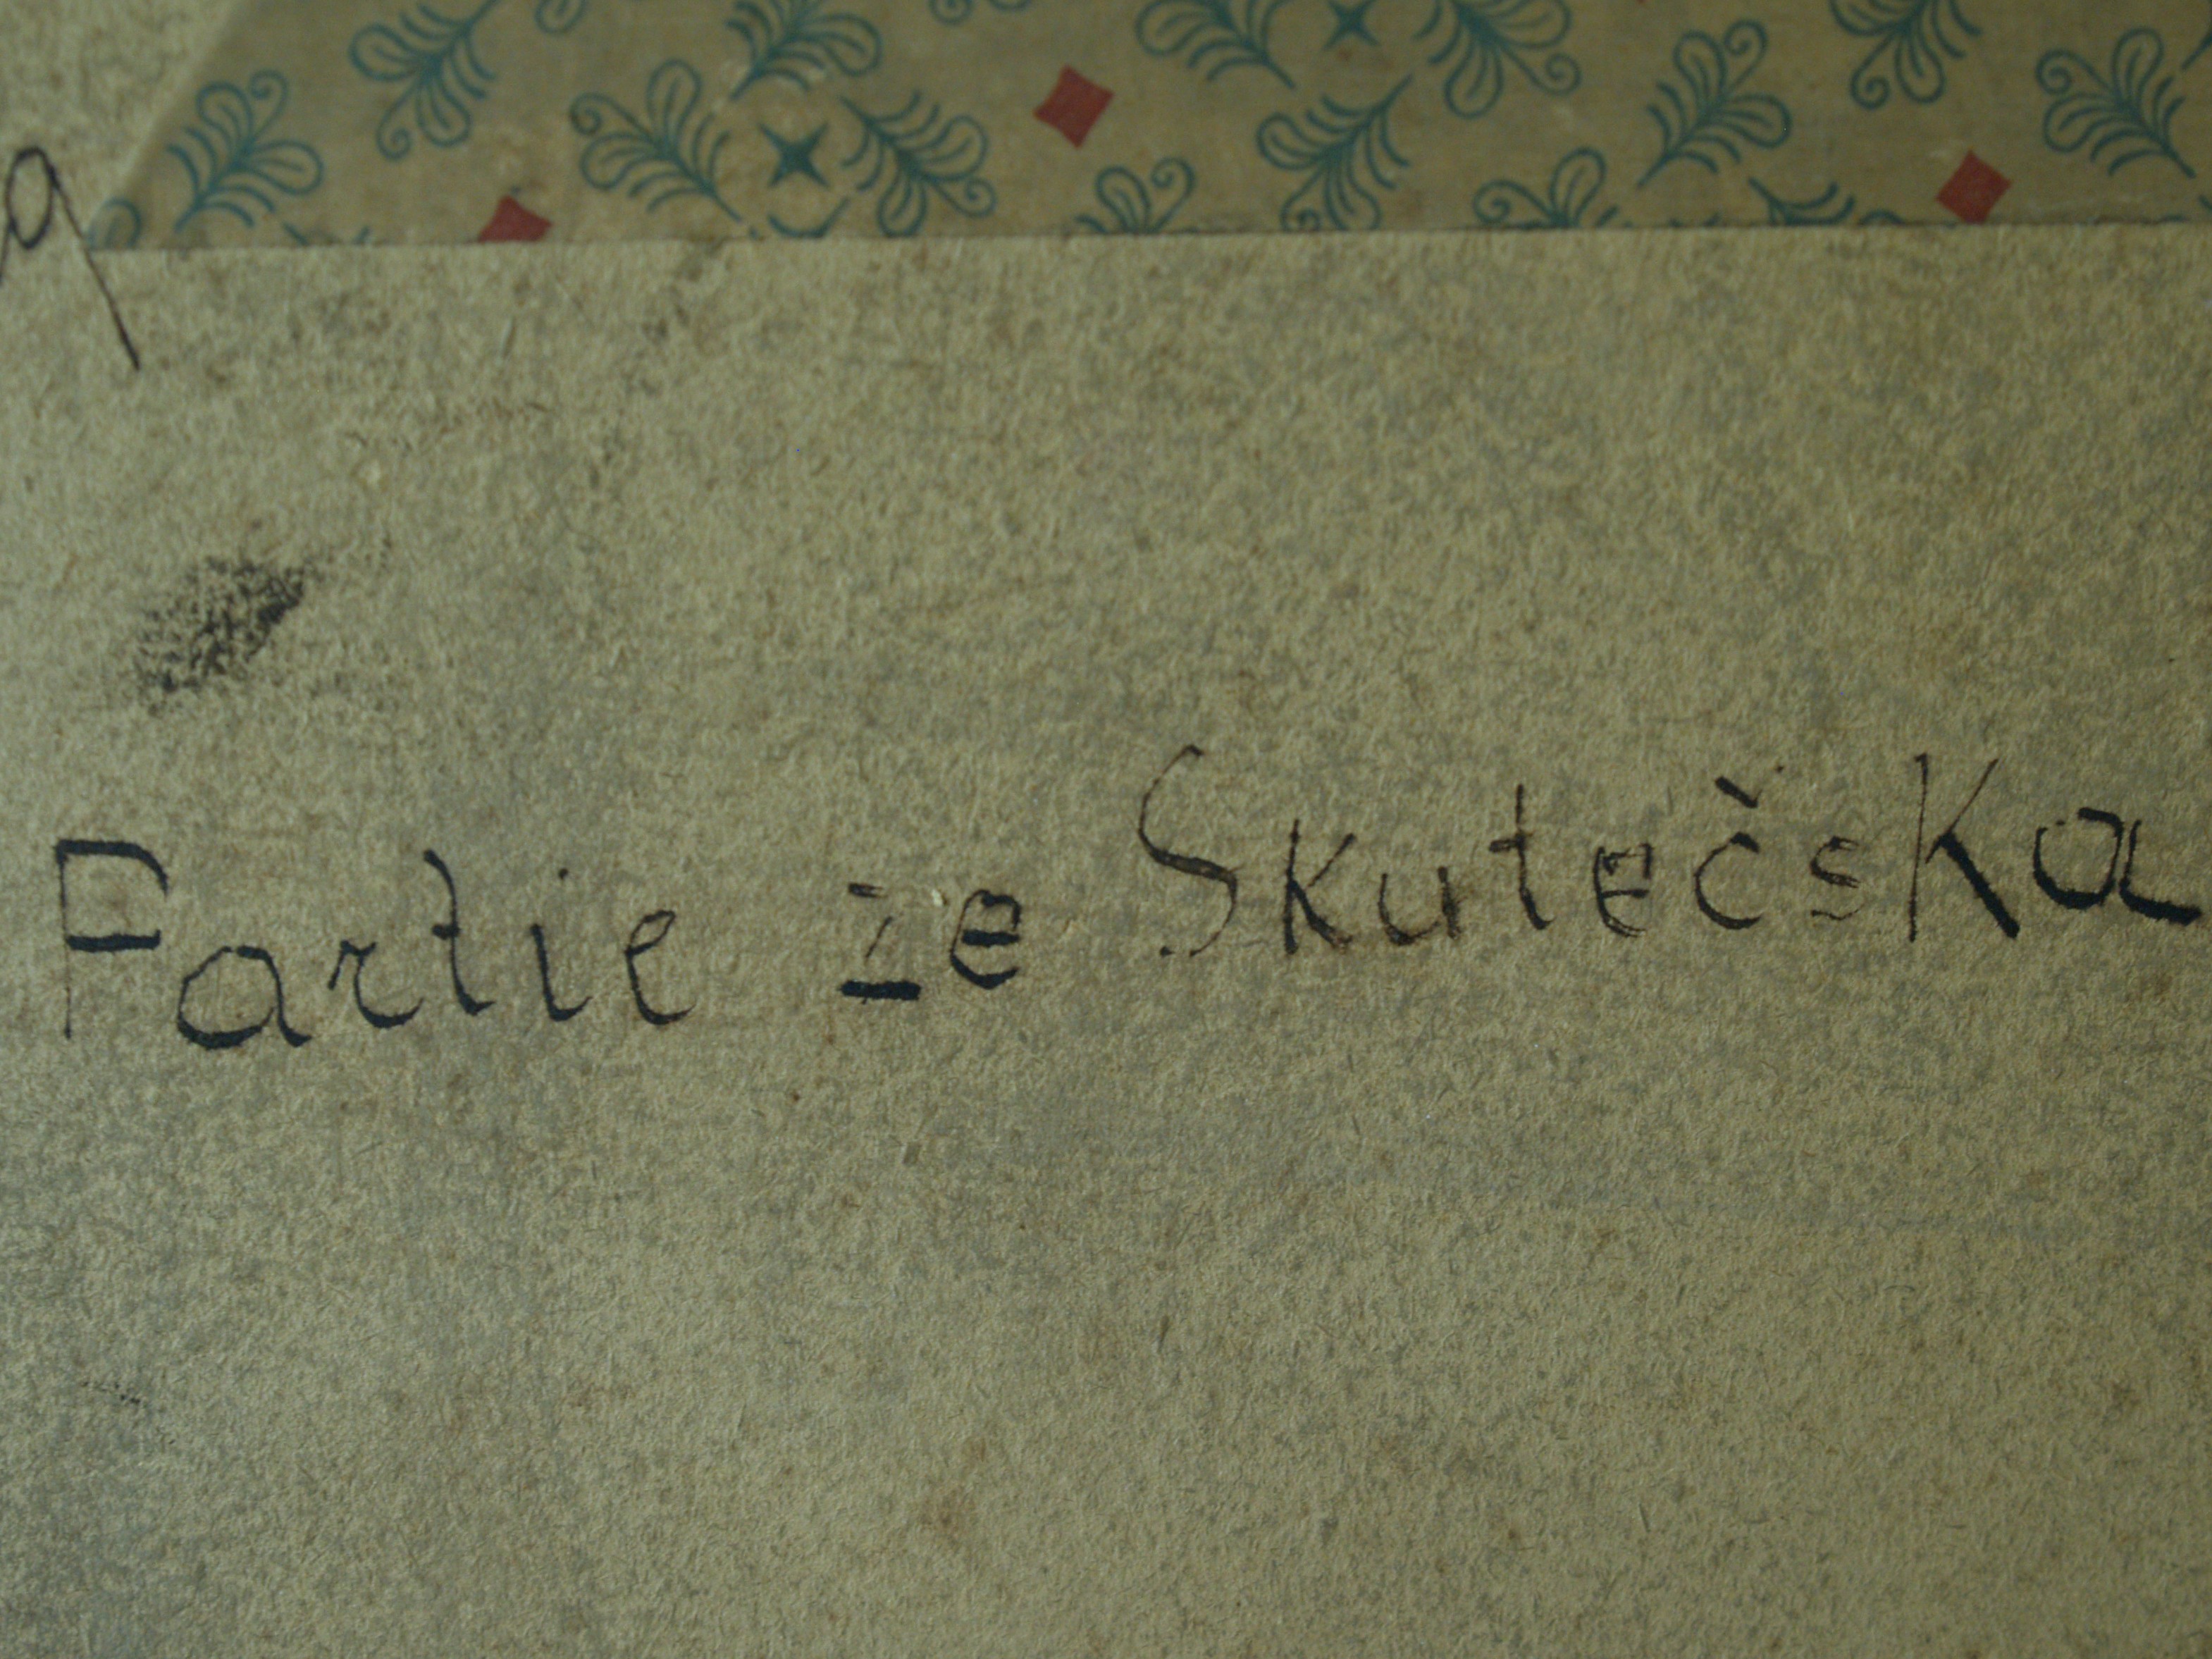 Partie ze Skutečska